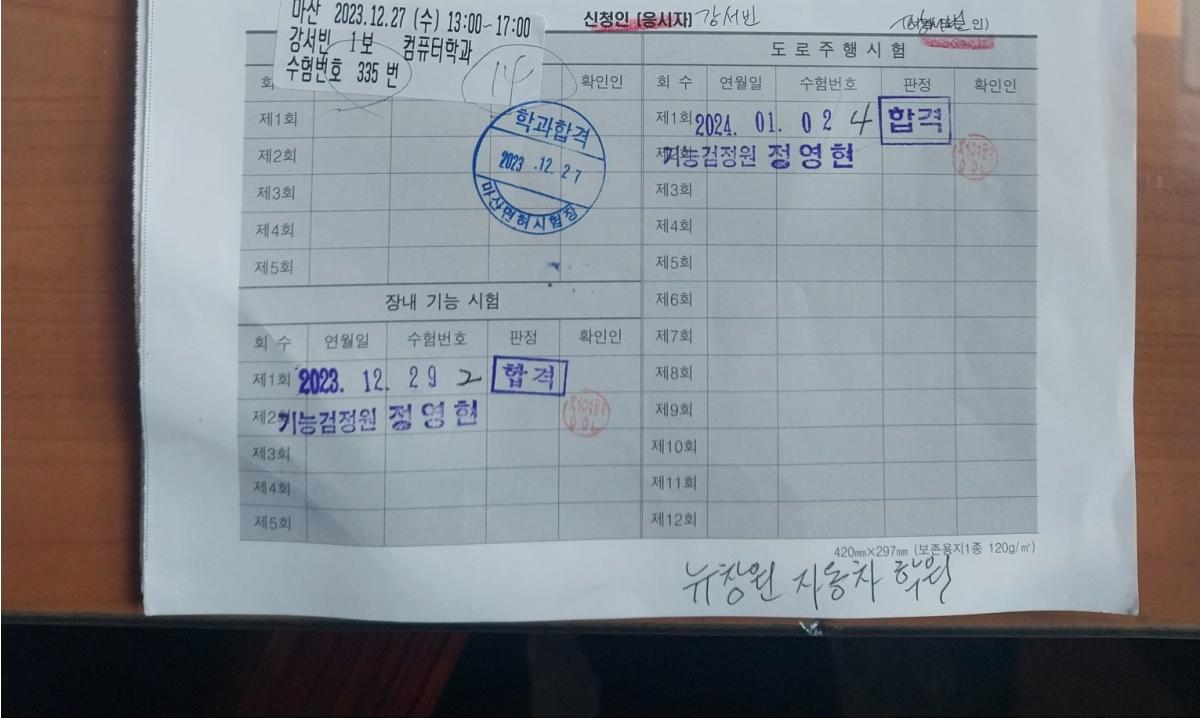 마산 2023.12.27 (수) 13:00~17:00
강서빈 1보 컴퓨터학과
수험번호 335 번
14
신청인 (응시자) 강서빈
인)
확인인
제1회
제2회
제3회
제4회
제5회
학과합격
2023 .12. 27
마산면허시험장
장내 기능 시험
회 수 연월일 수험번호 판정 확인인
제1회 2023. 12. 29 2 합격
제2회 기능검정원 정영현
제3회
제4회
제5회
도로주행시험
회 수 연월일 수험번호 판정 확인인
제1회 2024. 01. 02 4 합격
기능검정원 정영현
제3회
제4회
제5회
제6회
제7회
제8회
제9회
제10회
제11회
제12회
420㎜×297㎜ (보존용지1종 120g/㎡)
뉴창원 자동차 학원